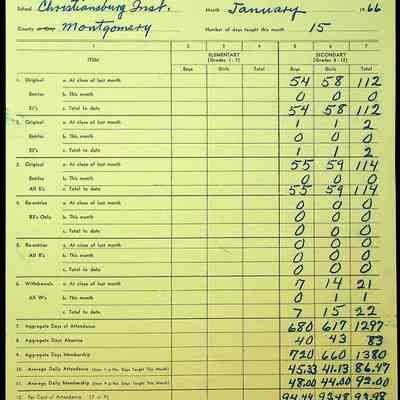 School Christiansburg Inst. Month January 1966
County or City Montgomery Number of days taught this month 15
1 2 3 4 5 6 7
ITEM ELEMENTARY (Grades 1-7) SECONDARY (Grades 8-12)
Boys Girls Total Boys Girls Total
1. Original a. At close of last month 54 58 112
Entries b. This month 0 0 0
E1's c. Total to date 54 58 112
2. Original a. At close of last month 1 1 2
Entries b. This month 0 0 0
E2's c. Total to date 1 1 2
3. Original a. At close of last month 55 59 114
Entries b. This month 0 0 0
All E's c. Total to date 55 59 114
4. Re-entries a. At close of last month 0 0 0
b. This month 0 0 0
c. Total to date 0 0 0
5. Re-entries a. At close of last month 0 0 0
All R's b. This month 0 0 0
c. Total to date 0 0 0
6. Withdrawals a. At close of last month 7 14 21
All W's b. This month 0 1 1
c. Total to date 7 15 22
7. Aggregate Days of Attendance 680 617 1297
8. Aggregate Days Absence 40 43 83
9. Aggregate Days Membership 720 660 1380
10. Average Daily Attendance (Item 7 ÷ No. Days Taught This Month) 45.33 41.13 86.47
11. Average Daily Membership (Item 9 ÷ No. Days Taught This Month) 48.00 44.00 92.00
12. Per Cent of Attendance 94.44 93.48 93.98